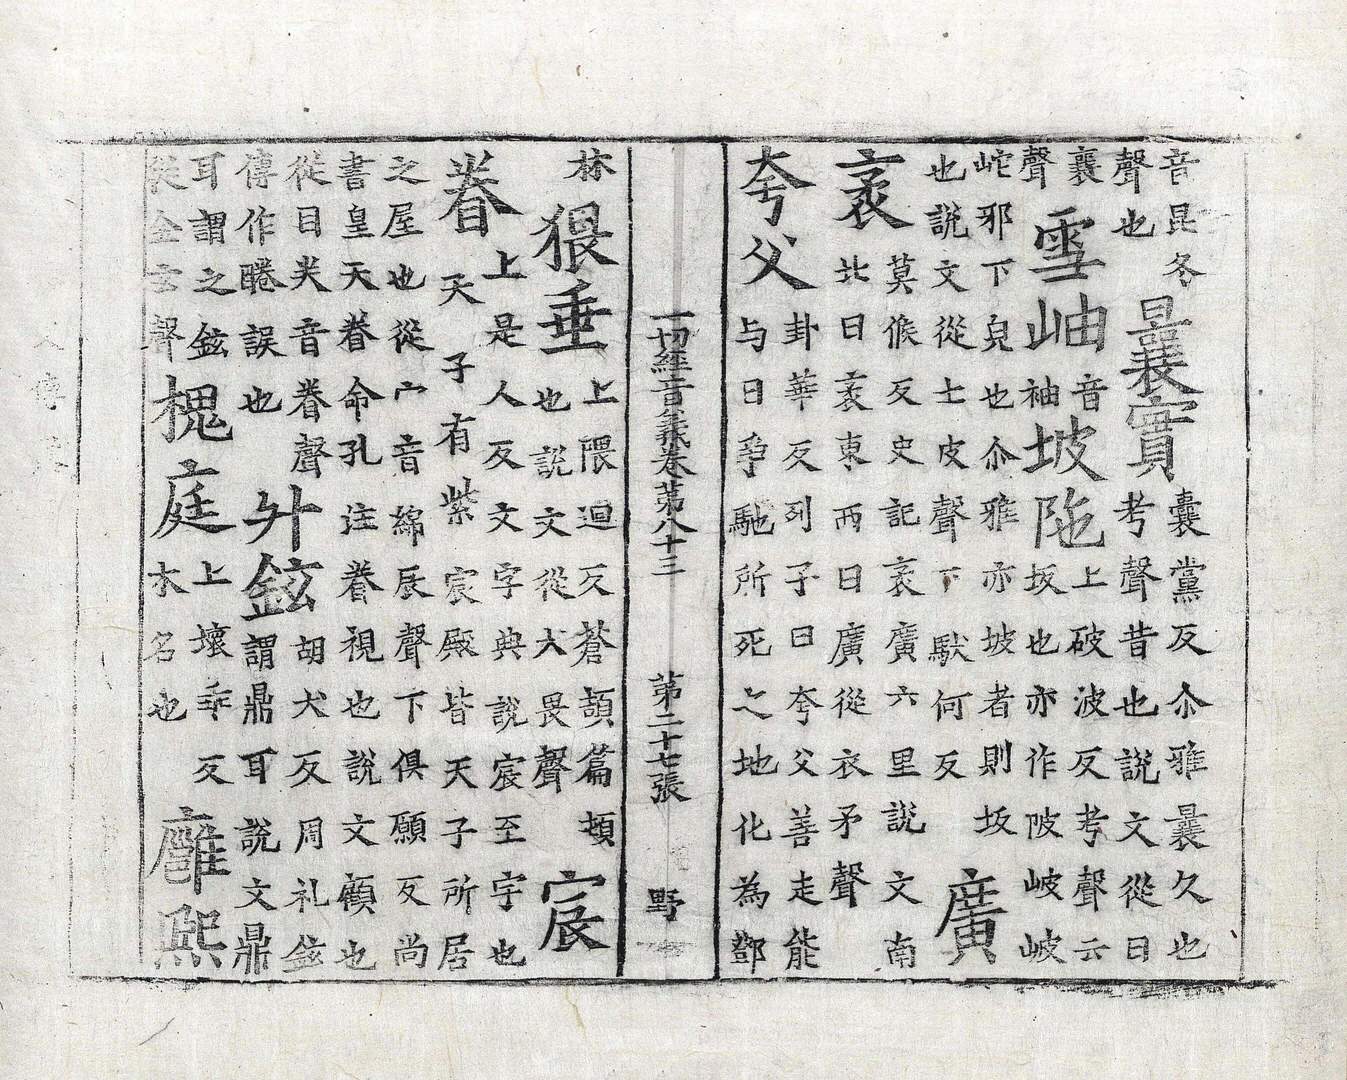 音昆冬
聲也
曩實
囊黨反尒雅曩久也
考聲昔也說文從日
襄
聲
雪岫
音
袖
坡陁
上破波反考聲云
坂也亦作陂岥岥
岮邪下皃也尒雅亦坡者則坂
也說文從土皮聲下馱何反
廣
袤
莫候反史記袤廣六里說文南
北曰袤東西曰廣從衣矛聲
夸父
卦華反列子曰夸父善走能
与日爭馳所死之地化為鄧
一切經音義卷第八十三 第二十七張 野
林
猥垂
上隈迴反蒼頡篇頓
也說文從犬畏聲
宸
眷
上是人反文字典說宸至字也
天子有紫宸殿皆天子所居
之屋也從宀音綿辰聲下俱願反尚
書皇天眷命孔注眷視也說文顧也
從目关音眷聲
傳作睠誤也
外鉉
胡犬反周礼鉉
謂鼎耳說文鼎
耳謂之鉉
從金玄聲
槐庭
上壞乖反
木名也
廱熙